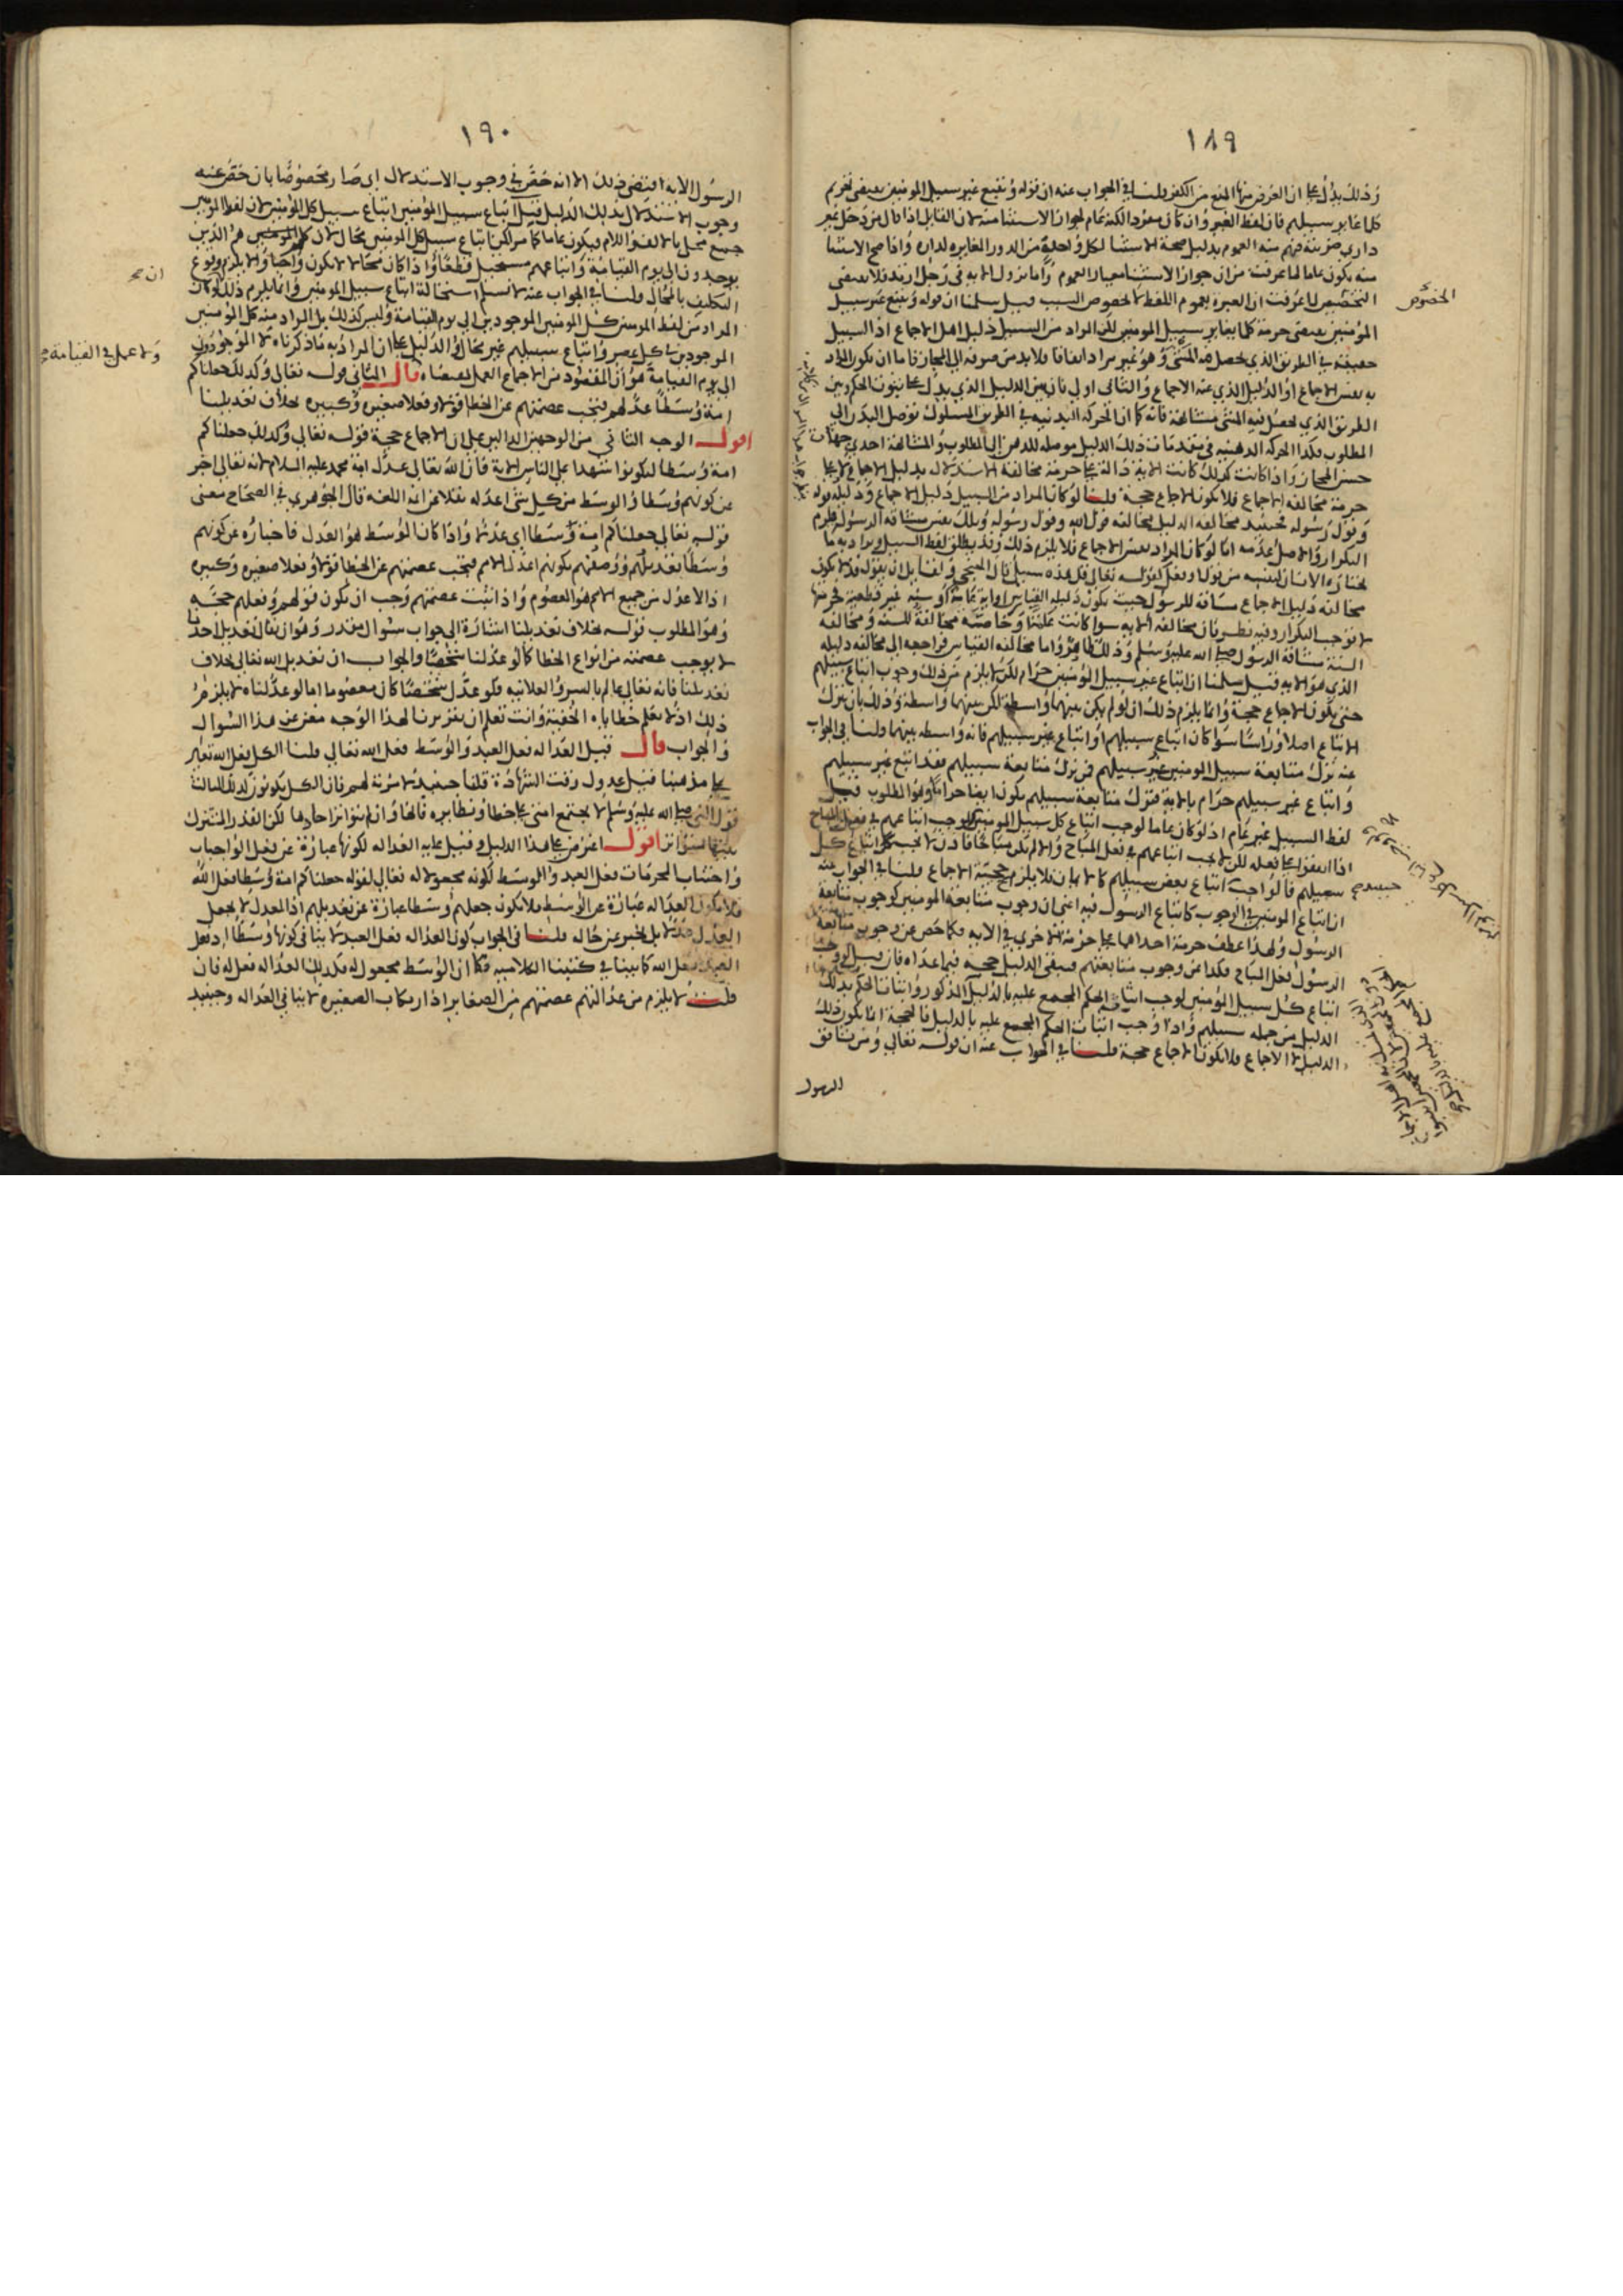 ١٨٩
وذلك يدل على ان الغرض منها المنع من الكفر قلنا في الجواب عنه ان قوله ويتبع غير سبيل المومنين يقتضى تحريم
كل ما غاير سبيلهم فان لفظ الغير وان كان مفردا لكنه عام لجواز الاستثنا منه لان القايل اذا قال من دخل غير
داري ضربته فهم منه العموم بدليل صحة الاستثنا لكل واحد من الدور المغايرة لداره واذا صح الاستثنا
منه يكون عاما لما عرفت من ان جواز الاستثنا معيار العموم واما نزول الاية في رجل ارتد فلا يقتضى
التخصيص لما عرفت ان العبرة بعموم اللفظ لا بخصوص السبب قيل سلمنا ان قوله ويتبع غير سبيل
الخصوص
المؤمنين يقتضى حرمة كل ما يغاير سبيل المومنين لكن المراد من السبيل دليل اهل الاجماع اذ السبيل
حقيقة في الطريق الذي يحصل فيه المشى وهو غير مراد اتفاقا فلا بد من صرفه الى المجاز فاما ان يكون المراد
به نفس الاجماع او الدليل الذي عنه الاجماع والثاني اولى فان بين الدليل الذي يدل على ثبوت الحكم وبين
الطريق الذي يحصل فيه المشى مشابهة فانه كما ان الحركة البدنية في الطريق المسلوك توصل البدن الى
المطلوب فكذا الحركة الذهنية في مقدمات ذلك الدليل موصلة للذهن الى المطلوب والمشابهة احدى جهات
حسن المجاز واذا كانت كذلك كانت الاية دالة على حرمة مخالفة الاستدلال بدليل الاجماع لا على
حرمة مخالفة الاجماع فلا يكون الاجماع حجة قلنا لو كان المراد من السبيل دليل الاجماع ودليله قوله
وقول رسوله فحينئذ مخالفة الدليل مخالفة قول الله وقول رسوله وتلك نفس مشاقة الرسول فيلزم
التكرار والاصل عدمه اما لو كان المراد نفس الاجماع فلا يلزم ذلك وقد يطلق لفظ السبيل ويراد به ما
يختاره الانسان لنفسه من قول او فعل لقوله تعالى قل هذه سبيلي قال الخنجي ولقايل ان يقول قد لا يكون
مخالفة دليل الاجماع مشاقة للرسول حيث يكون دليله القياس او اية عامة او سنة غير قطعية فحرمتها
لا توجب التكرار وفيه نظر فان مخالفة الاية سوا كانت عامة او خاصة مخالفة للسنة ومخالفة
السنة مشاقة الرسول صلى الله عليه وسلم وذلك ظاهر واما مخالفة القياس فراجعة الى مخالفة دليله
الذي هو الاية قيل سلمنا ان اتباع غير سبيل المؤمنين حرام لكن لا يلزم من ذلك وجوب اتباع سبيلهم
حتى يكون الاجماع حجة وانما يلزم ذلك ان لو لم يكن بينهما واسطة لكن بينهما واسطة وذلك بان يترك
الاتباع اصلا وراسا سوا كان اتباع سبيلهم او اتباع غير سبيلهم فانه واسطة بينهما قلنا في الجواب
عنه ترك متابعة سبيل المومنين غير سبيلهم فمن ترك متابعة سبيلهم فقد اتبع غير سبيلهم
واتباع غير سبيلهم حرام بالاية فترك متابعة سبيلهم يكون ايضا حراما وهو المطلوب قيل
لفظ السبيل غير عام اذ لو كان عاما لوجب اتباع كل سبيل المومنين فلوجب اتباعهم في فعل المباح
اذا اتفقوا على فعله لكن لا يجب اتباعهم في فعل المباح والا لم يكن مباحا فاذن لا يجب اتباع كل
سبيلهم فالواجب اتباع بعض سبيلهم كالايمان فلا يلزم حجية الاجماع قلنا في الجواب عنه
حينئذ
ان اتباع المومنين في الوجوب كاتباع الرسول فيه اعنى ان وجوب متابعة المومنين كوجوب متابعة
الرسول ولهذا عطف حرمة احداهما على حرمة الاخرى في الاية فكما خص عن وجوب متابعة
الرسول فعل المباح فكذا عن وجوب متابعتهم فيبقى الدليل حجة فيما عداه فان قيل لو وجب
اتباع كل سبيل المؤمنين لوجب اثبات الحكم المجمع عليه بالدليل المذكور واثبات الحكم بذلك
الدليل من جملة سبيلهم واذا وجب اثبات الحكم المجمع عليه بالدليل فالحجة انما يكون ذلك
الدليل لا الاجماع فلا يكون الاجماع حجة قلنا في الجواب عنه ان قوله تعالى ومن يشاقق
الرسول
١٩٠
الرسول الاية اقتضى ذلك الا انه خص في وجوب الاستدلال اي صار مخصوصا بان خص عنه
وجوب الاستدلال بذلك الدليل قيل اتباع سبيل المؤمنين اتباع سبيل كل المؤمنين لان لفظ المومنين
جمع محلى بالالف واللام فيكون عاما كما مر لكن اتباع سبيل كل المومنين محال لان كل المومنين هم الذين
يوجدون الى يوم القيامة واتباعهم مستحيل قطعا واذا كان محالا لا يكون واجبا والا يلزم وقوع
ان
التكليف بالمحال قلنا في الجواب عنه لا نسلم استحالة اتباع سبيل المومنين وانما يلزم ذلك لو كان
المراد من لفظ المومنين كل المومنين الموجودين الى يوم القيامة وليس كذلك بل المراد منه كل المؤمنين
الموجودين في كل عصر واتباع سبيلهم غير محال والدليل على ان المراد به ما ذكرناه لا الموجودون
ولا عمل في القيامة
الى يوم القيامة هو ان المقصود من الاجماع العمل بمقتضاه قال الثاني قوله تعالى وكذلك جعلناكم
امة وسطا عدلهم فتجب عصمتهم عن الخطا قولا وفعلا صغيره وكبيره بخلاف تعديلنا
اقول الوجه الثاني من الوجهين الدالين على ان الاجماع حجة قوله تعالى وكذلك جعلناكم
امة وسطا لتكونوا شهدا على الناس الاية فان الله تعالى عدل امة محمد عليه السلام لانه تعالى اخبر
عن كونهم وسطا والوسط من كل شى اعدله نقلا عن ائمة اللغة قال الجوهري في الصحاح معنى
قوله تعالى جعلناكم امة وسطا اي عدلا واذا كان الوسط هو العدل فاخباره عن كونهم
وسطا تعديلهم ووصفهم بكونهم اعدل الامم فتجب عصمتهم عن الخطا قولا وفعلا صغيره وكبيره
اذ الاعدل من جميع الامم هو المعصوم واذا ثبت عصمتهم وجب ان يكون قولهم وفعلهم حجة
وهو المطلوب قوله بخلاف تعديلنا اشارة الى جواب سؤال مقدر وهو ان يقال تعديل احدنا
لا يوجب عصمته من انواع الخطا كما لو عدلنا شخصا والجواب ان تعديل الله تعالى بخلاف
تعديلنا فانه تعالى عالم بالسر والعلانية فلو عدل شخصا كان معصوما اما لو عدلناه لا يلزم
ذلك اذ لا نعلم خطاياه الخفية وانت تعلم ان تقريرنا لهذا الوجه مغن عن هذا السؤال
والجواب قال قيل العدالة فعل العبد والوسط فعل الله تعالى قلنا الكل فعل الله تعالى
على مذهبنا قيل عدول وقت الشهادة قلنا حينئذ لا مزية لهم فان الكل يكونون كذلك الثالث
قول النبي صلى الله عليه وسلم لا يجتمع امتى على خطا ونظايره فانها وان لم يتواتر احادها لكن القدر المشترك
بينها متواتر اقول اعترض على هذا الدليل وقيل عليه العدالة لكونها عبارة عن فعل الواجبات
واجتناب المحرمات فعل العبد والوسط لكونه مجعولا له تعالى لقوله جعلناكم امة وسطا فعل الله
فلا يكون العدالة عبارة عن الوسط فلا يكون جعلهم وسطا عبارة عن تعديلهم اذ المعدل لا يجعل
العدل عدلا بل يخبر عن حاله قلنا في الجواب كون العدالة فعل العبد لا ينافي كونها وسطا اذ فعل
العبد فعل الله كما بينا في كتبنا الكلامية فكما ان الوسط مجعول له فكذلك العدالة فعل له فان
قلت لا يلزم من عدالتهم عصمتهم من الصغاير اذ ارتكاب الصغيره لا ينافي العدالة وحينئذ